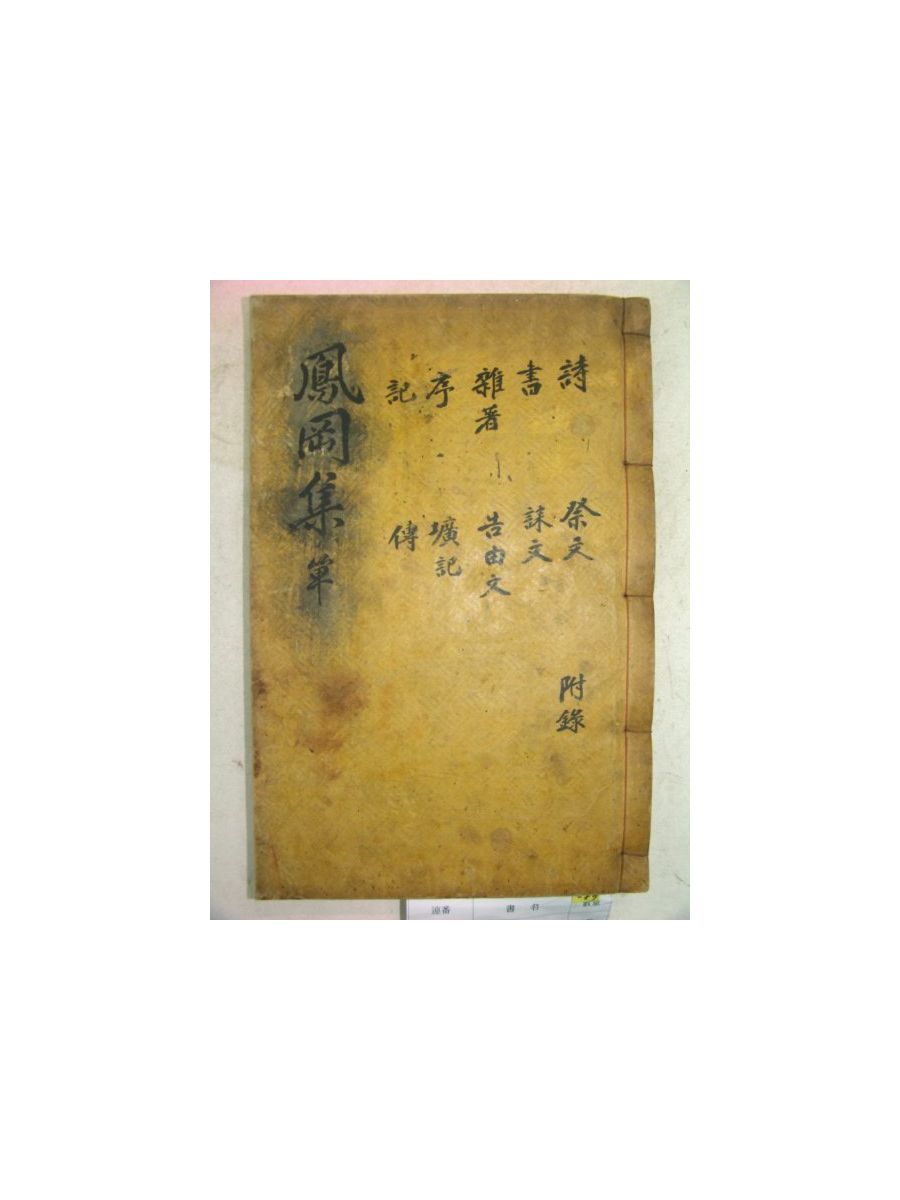 詩
書
雜著
序
記
祭文
誄文
告由文
壙記
傳
附錄
鳳岡集 單
連番 書名